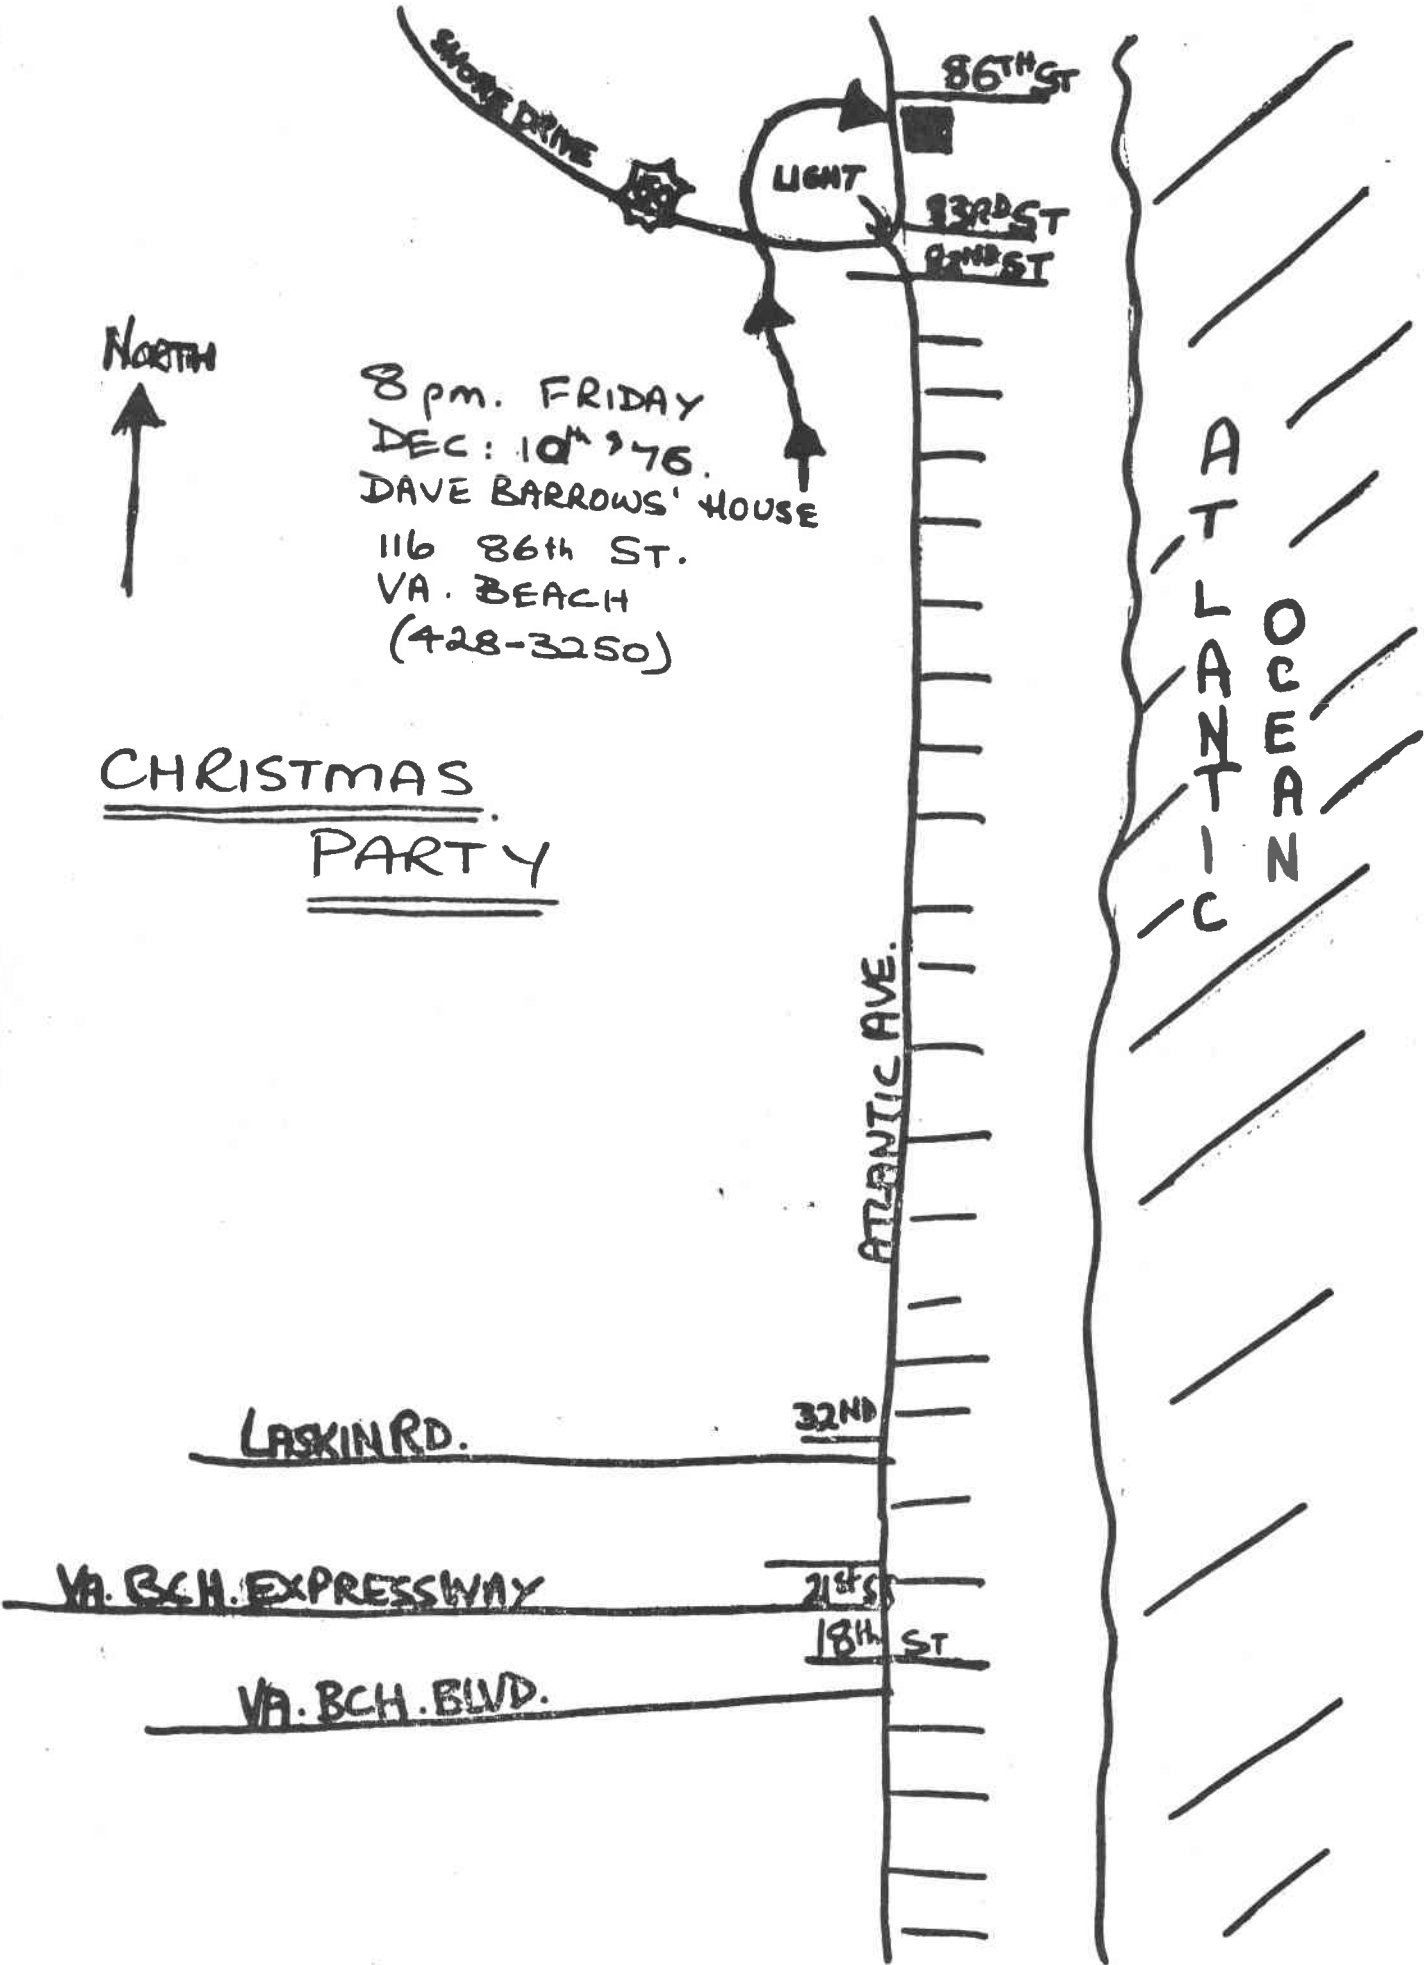 SHORE DRIVE
86TH ST
60
LIGHT
83RD ST
82ND ST
NORTH
8 pm. FRIDAY
DEC: 10th '76.
DAVE BARROWS' HOUSE
116 86th ST.
VA. BEACH
(428-3250)
ATLANTIC
OCEAN
CHRISTMAS.
PARTY
ATLANTIC AVE.
32ND
LASKIN RD.
VA. BCH. EXPRESSWAY
21st S
18th ST
VA. BCH. BLVD.